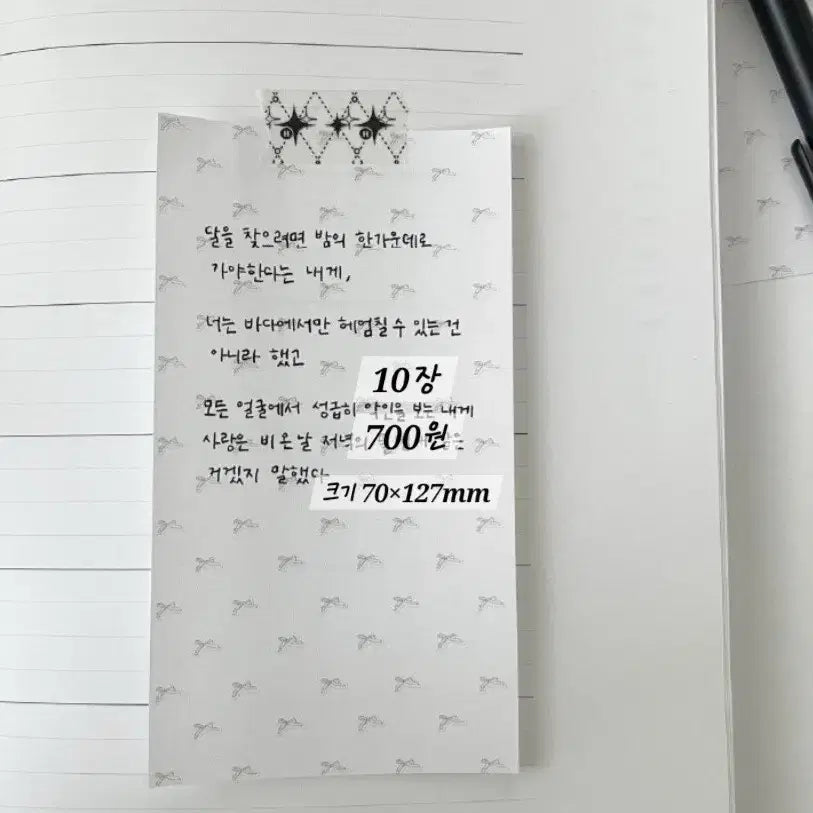 달을 찾으려면 밤의 한가운데로
가야한다는 내게,
너는 바다에서만 헤엄칠 수 있는 건
아니라 했고
10장
모든 얼굴에서 성급히 악인을 보는 내게
사랑은 비 온 날 저녁의
700원
거겠지 말했다
크기 70×127mm